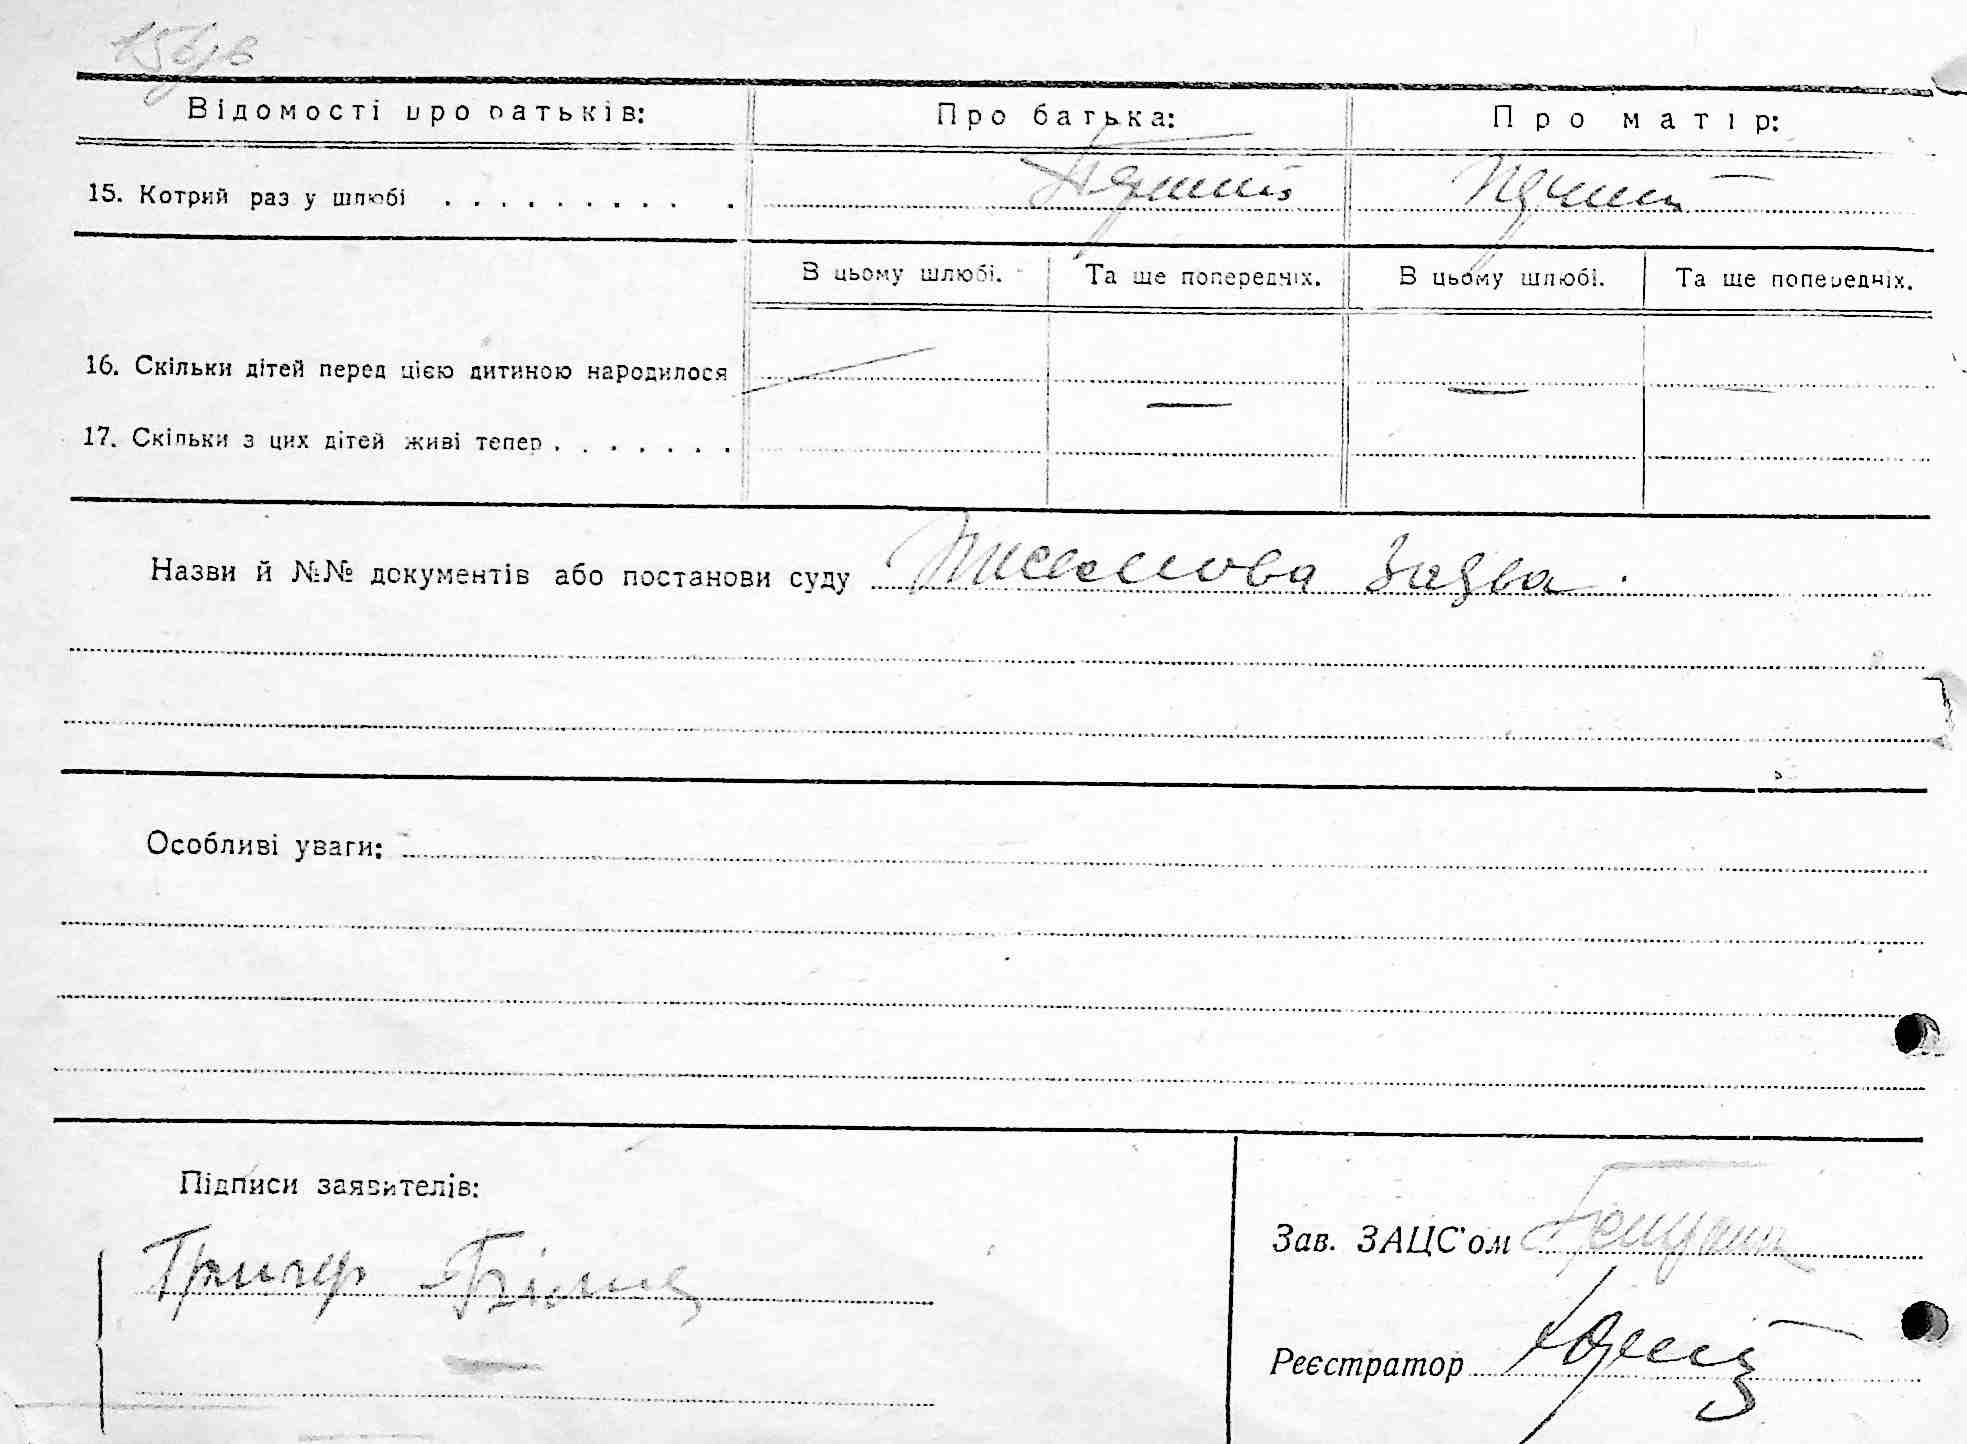 Відомості про батьків: Про батька: Про матір:
15. Котрий раз у шлюбі . . . . . . . . . . . Перший Перший
В цьому шлюбі. Та ще попередніх. В цьому шлюбі. Та ще попередніх.
16. Скільки дітей перед цією дитиною народилося — — —
17. Скільки з цих дітей живі тепер . . . . . . .
Назви й №№ документів або постанови суду Письмова Заява.
Особливі уваги:
Підписи заявителів:
Зав. ЗАЦС'ом
Реєстратор